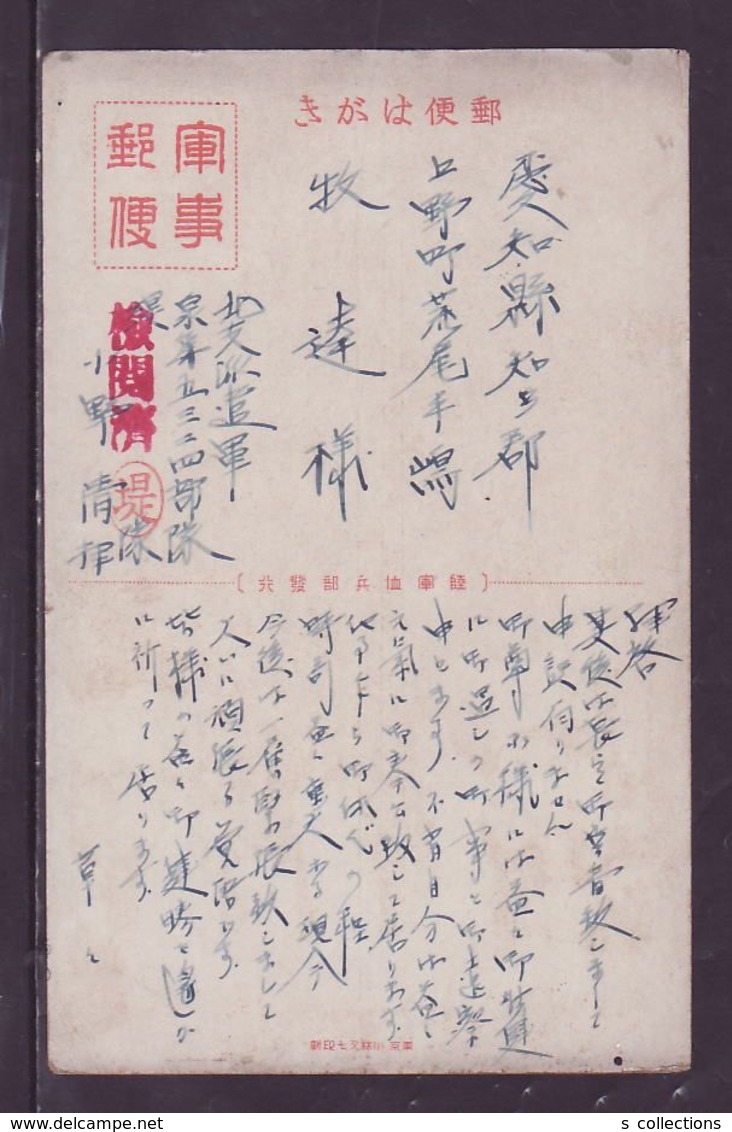 郵便はがき
軍事
郵便
愛知縣知多郡
上野町荒尾平嶋
牧達様
北支派遣軍
泉第五三二四部隊
隊
小野清
検閲済
堤
〔陸軍恤兵部發行〕
拝啓
其後は長らく御無音致しまして
申訳有りません
御尊家様には益々御壮健
に御過しの御事と御上遠察
申します 不肖自分は益々
元気に御奉公致して居ります
時局益々重大なる現今
今後は一層緊張致しまして
大いに頑張る覚悟です
皆様の益々御健勝を遥か
に祈って居ります
草々
東京 小林又七印刷
s collections